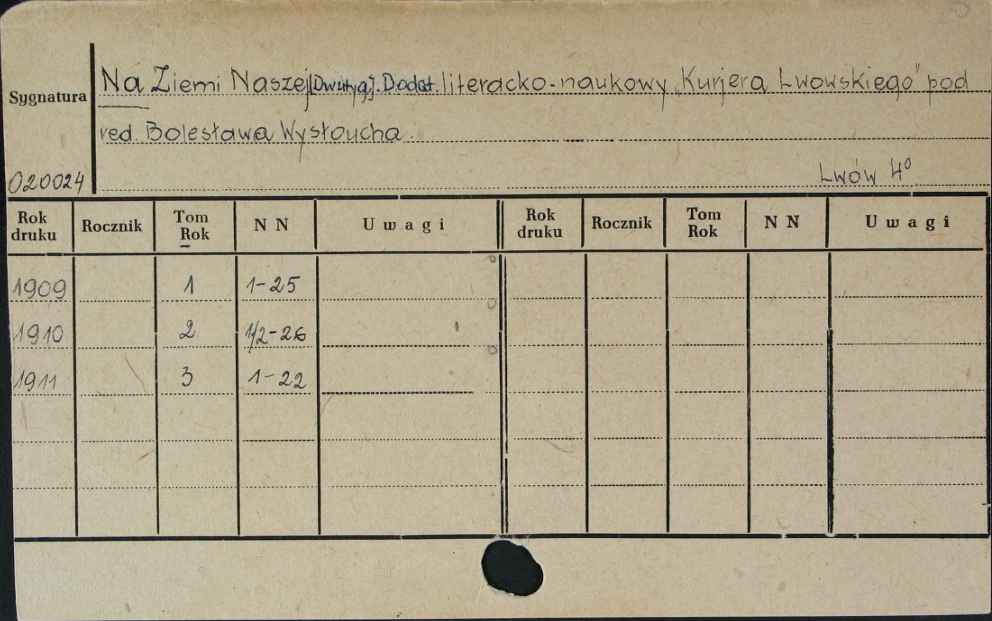 Na Ziemi Naszej [Dwutyg]. Dodat. literacko-naukowy „Kurjera Lwowskiego" pod
Sygnatura
red. Bolesława Wysłoucha.
020024
Lwów 4°
Rok druku Rocznik Tom Rok N N Uwagi Rok druku Rocznik Tom Rok N N Uwagi
1909 1 1-25
1910 2 1/2-26
1911 3 1-22